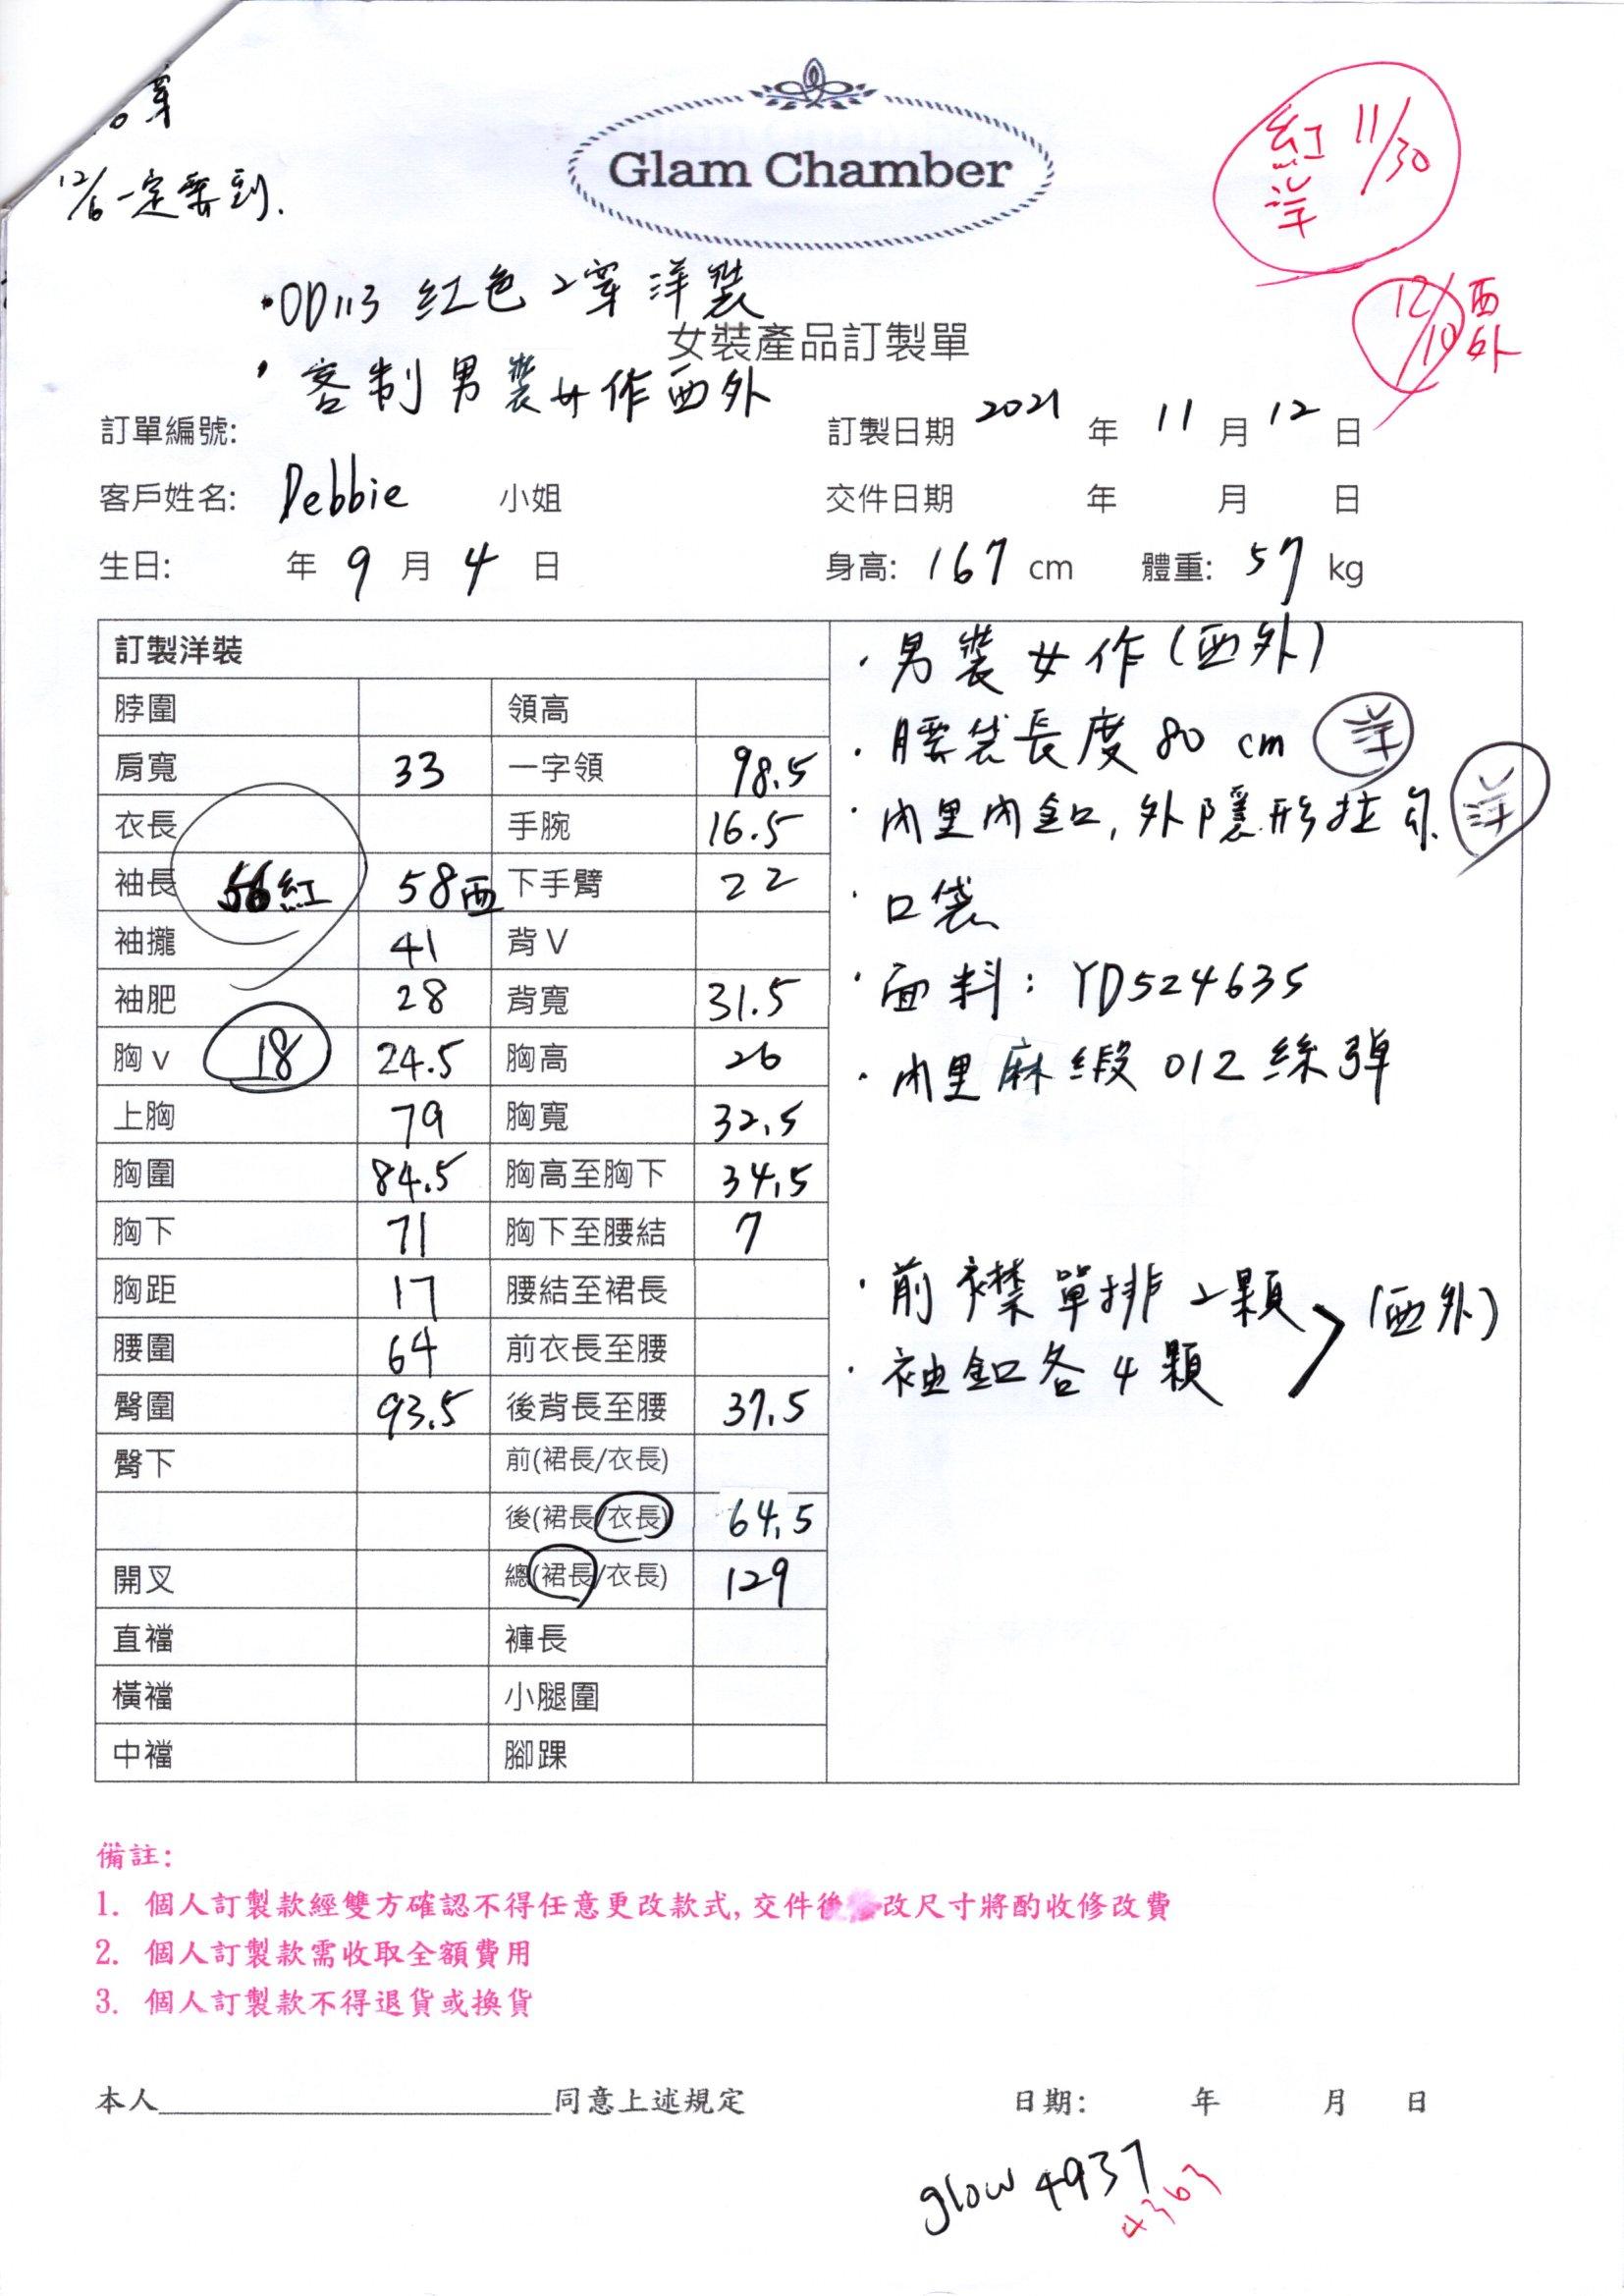 穿
12/6一定要到.
Glam Chamber
紅 11/30
洋
12/10 西外
•OD113 紅色2穿洋裝
女裝產品訂製單
• 客制男裝女作西外
訂單編號: 訂製日期 2021 年 11 月 12 日
客戶姓名: Debbie 小姐 交件日期 年 月 日
生日: 年 9 月 4 日 身高: 167 cm 體重: 57 kg
訂製洋裝
脖圍 領高
肩寬 33 一字領 98.5
衣長 手腕 16.5
袖長 56紅 58西 下手臂 22
袖攏 41 背V
袖肥 28 背寬 31.5
胸v 18 24.5 胸高 26
上胸 79 胸寬 32.5
胸圍 84.5 胸高至胸下 34.5
胸下 71 胸下至腰結 7
胸距 17 腰結至裙長
腰圍 64 前衣長至腰
臀圍 93.5 後背長至腰 37.5
臀下 前(裙長/衣長)
後(裙長/衣長) 64.5
開叉 總(裙長/衣長) 129
直襠 褲長
橫襠 小腿圍
中襠 腳踝
• 男裝女作(西外)
• 腰袋長度 80 cm 洋
• 內里內釦,外隱形拉勾 洋
• 口袋
• 面料: YD524635
• 內里麻緞 012 絲彈
• 前襟單排2顆
• 袖釦各4顆 (西外)
備註:
1. 個人訂製款經雙方確認不得任意更改款式,交件後改尺寸將酌收修改費
2. 個人訂製款需收取全額費用
3. 個人訂製款不得退貨或換貨
本人 同意上述規定 日期: 年 月 日
glow 4937
4363